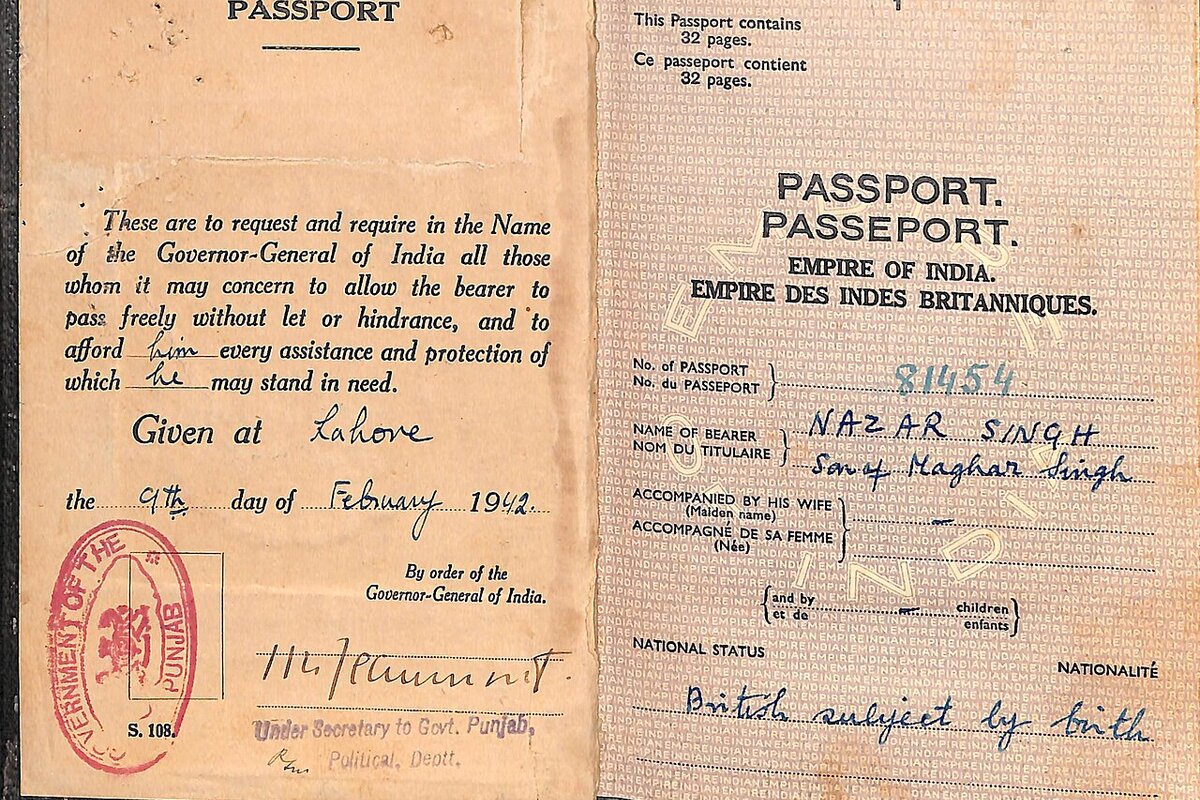 PASSPORT
These are to request and require in the Name
of the Governor-General of India all those
whom it may concern to allow the bearer to
pass freely without let or hindrance, and to
afford him every assistance and protection of
which he may stand in need.
Given at Lahore
the 9th day of February 1942.
By order of the
Governor-General of India.
GOVERNMENT OF THE PUNJAB
S. 108.
Under Secretary to Govt. Punjab,
Political, Deptt.
This Passport contains
32 pages.
Ce passeport contient
32 pages.
PASSPORT.
PASSEPORT.
EMPIRE OF INDIA.
EMPIRE DES INDES BRITANNIQUES.
No. of PASSPORT
No. du PASSEPORT
81454
NAME OF BEARER
NOM DU TITULAIRE
NAZAR SINGH
Son of Maghar Singh
ACCOMPANIED BY HIS WIFE
(Maiden name)
ACCOMPAGNÉ DE SA FEMME
(Née)
–
and by – children
et de enfants
NATIONAL STATUS
NATIONALITÉ
British subject by birth